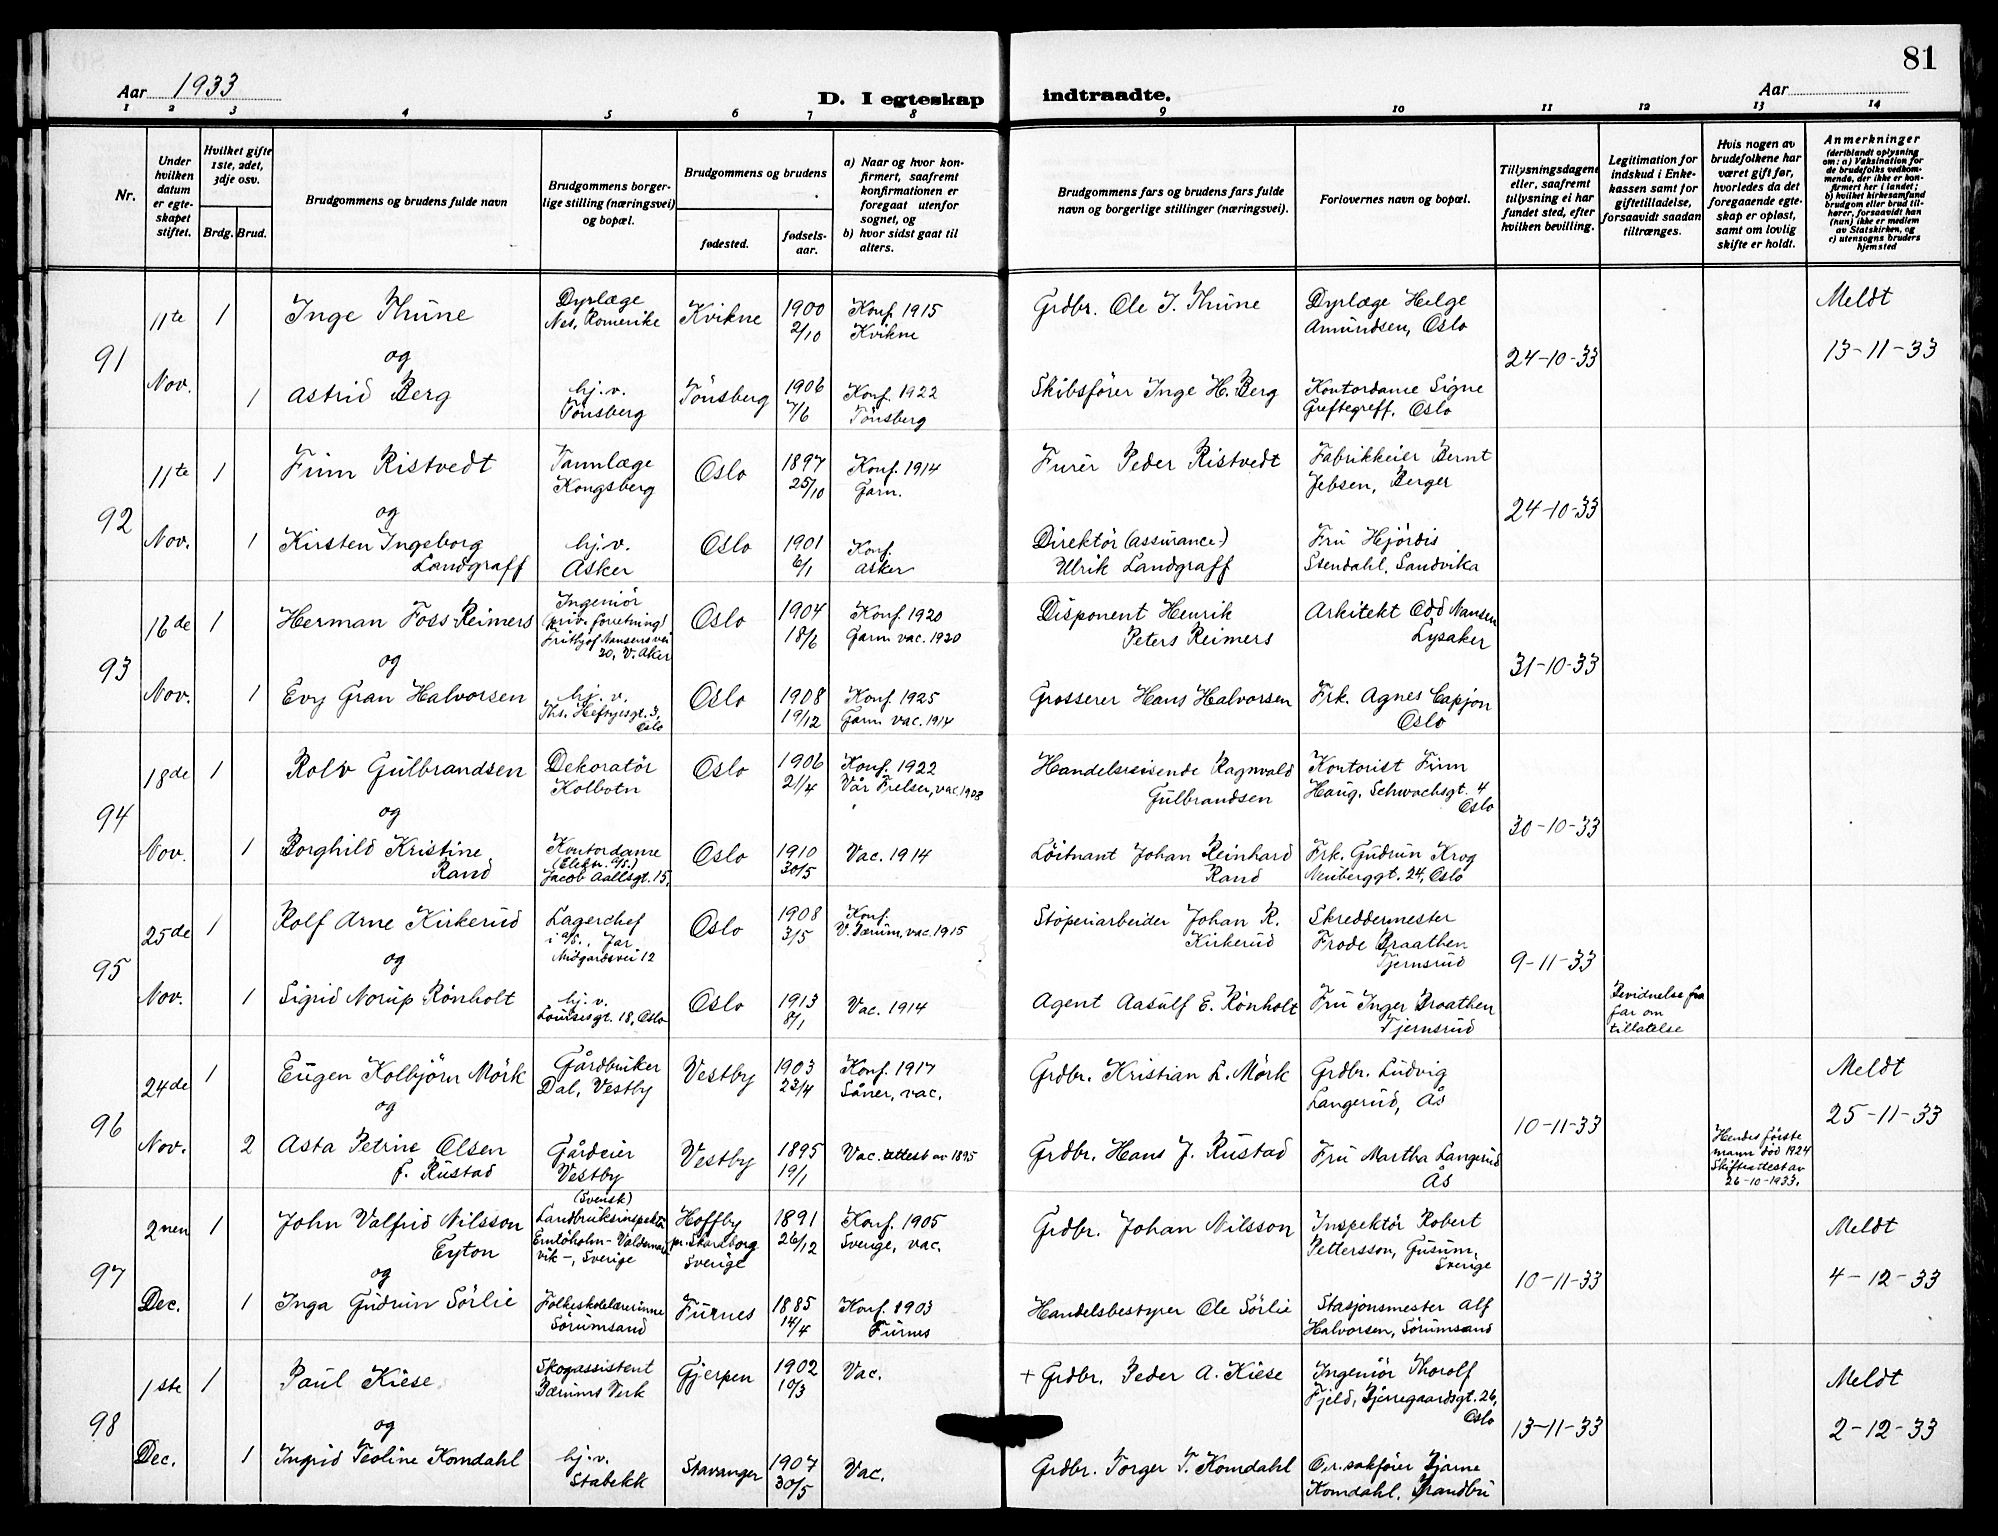 81
Aar 1933
D. I egteskap indtraadte.
Aar
1 2 3 4 5 6 7 8 9 10 11 12 13 14
Nr.
Under hvilken datum er egteskapet stiftet.
Hvilket gifte 1ste, 2det, 3dje osv.
Brdg. Brud.
Brudgommens og brudens fulde navn
Brudgommens borgerlige stilling (næringsvei) og bopæl.
Brudgommens og brudens
fødested.
fødselsaar.
a) Naar og hvor konfirmert, saafremt konfirmationen er foregaat utenfor sognet, og
b) hvor sidst gaat til alters.
Brudgommens fars og brudens fars fulde navn og borgerlige stillinger (næringsvei).
Forlovernes navn og bopæl.
Tillysningsdagene eller, saafremt tillysning ei har fundet sted, efter hvilken bevilling.
Legitimation for indskud i Enkekassen samt for giftetilladelse, forsaavidt saadan tiltrænges.
Hvis nogen av brudefolkene har været gift før, hvorledes da det foregaaende egteskap er opløst, samt om lovlig skifte er holdt.
Anmerkninger (deriblandt oplysning om: a) Vaksination for de brudefolks vedkommende, der ikke er konfirmert her i landet; b) hvilket kirkesamfund brudgom eller brud tilhører, forsaavidt han (hun) ikke er medlem av Statskirken, og c) utensogns bruders hjemsted
91
11te Nov.
1
Inge Thune
Dyrlæge
Nes, Romerike
Kvikne
1900
2/10
Konf. 1915
Kvikne
Grdbr. Ole I. Thune
Dyrlæge Helge
Amundsen, Oslo
24-10-33
Meldt
13-11-33
og
1
Astrid Berg
hj.v.
Tönsberg
Tönsberg
1906
7/6
Konf. 1922
Tönsberg
Skibsförer Inge H. Berg
Kontordame Signe
Greftegreff, Oslo
92
11te Nov.
1
Finn Ristvedt
Tannlæge
Kongsberg
Oslo
1897
25/10
Konf. 1914
Garn.
Furér Peder Ristvedt
Fabrikkeier Bernt
Jebsen, Berger
24-10-33
og
1
Kirsten Ingeborg
Landgraff
hj.v.
Asker
Oslo
1901
6/1
Konf.
Asker
Direktör (assurance)
Ulrik Landgraff
Fru Hjördis
Stendahl, Sandvika
93
16de Nov.
1
Herman Foss Reimers
Ingeniör
(priv. forretning)
Frithjof Nansens vei
20, V. Aker
Oslo
1904
18/6
Konf. 1920
Garn. vac. 1920
Disponent Henrik
Peters Reimers
Arkitekt Odd Nansen
Lysaker
31-10-33
og
1
Evy Gran Halvorsen
hj.v.
Ths. Heftyesgt. 3,
Oslo
Oslo
1908
19/12
Konf. 1925
Garn. vac. 1914
Grosserer Hans Halvorsen
Frk. Agnes Capjon
Oslo
94
18de Nov.
1
Rolv Gulbrandsen
Dekoratör
Kolbotn
Oslo
1906
21/4
Konf. 1922
Vår Frelser, vac. 1908
Handelsreisende Ragnvald
Gulbrandsen
Kontorist Finn
Haug, Schwachsgt. 4
Oslo
30-10-33
og
1
Borghild Kristine
Rand
Kontordame
(Elektr. A/S.)
Jacob Aallsgt. 15,
Oslo
1910
30/5
Vac. 1914
Löitnant Johan Reinhard
Rand
Frk. Gudrun Krog
Neuberggt. 24, Oslo
95
25de Nov.
1
Rolf Arne Kirkerud
Lagerchef
i A/S., Jar
Midgardsvei 12
Oslo
1908
3/5
Konf.
V. Bærum, vac. 1915
Stöperiarbeider Johan R.
Kirkerud
Skreddermester
Frode Braathen
Tjernsrud
9-11-33
og
1
Sigrid Norup Rönholt
hj.v.
Louisesgt. 18, Oslo
Oslo
1913
8/1
Vac. 1914
Agent Aasulf E. Rönholt
Fru Inger Braathen
Tjernsrud
Bevidnelse fra
far om
tillatelse
96
24de Nov.
1
Eugen Kolbjörn Mörk
Gårdbruker
Dal, Vestby
Vestby
1903
23/4
Konf. 1917
Såner, vac.
Grdbr. Kristian L. Mörk
Grdbr. Ludvig
Langerud, Ås
10-11-33
Meldt
25-11-33
og
2
Asta Petrine Olsen
f. Rustad
Gårdeier
Vestby
Vestby
1895
19/1
Vac. attest av 1895
Grdbr. Hans J. Rustad
Fru Martha Langerud
Ås
Hendes förste
mann död 1924
Skifteattest av
26-10-1933.
97
2nen Dec.
1
John Valfrid Nilsson
Eyton
(Svensk)
Landbruksinspektör
Valdemarsvik -, Sverige
Hoffby
Sverige
1891
26/12
Konf. 1905
Sverige, vac.
Grdbr. Johan Nilsson
Inspektör Robert
Pettersson, Gusum,
Sverige
10-11-33
Meldt
4-12-33
og
1
Inga Gudrun Sörlie
Folkeskolelærerinne
Sörumsand
Furnes
1885
14/4
Konf. 1903
Furnes
Handelsbestyrer Ole Sörlie
Stasjonsmester Alf
Halvorsen, Sörumsand
98
1ste Dec.
1
Paul Kiese
Skogassistent
Bærums Verk
Gjerpen
1902
10/3
Vac.
+ Grdbr. Peder A. Kiese
Ingeniör Thorolf
Fjeld, Bjerregaardsgt. 26,
Oslo
13-11-33
Meldt
2-12-33
og
1
Ingrid Teoline Komdahl
hj.v.
Stabekk
Stavanger
1907
30/5
Vac.
Grdbr. Torger T. Komdahl
O.r.sakförer Bjarne
Komdahl, Brandbu